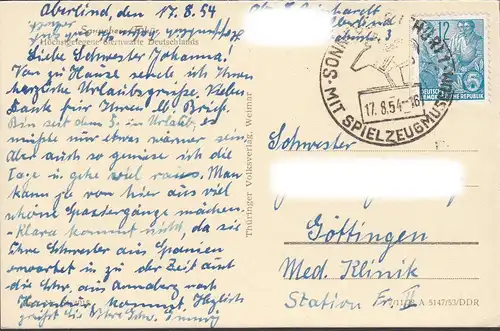 Oberlind, den 17.8.54
Höchstgelegene Sternwarte Deutschlands
Liebe Schwester Johanna!
Von zu Hause sende ich Ihnen
herzliche Urlaubsgrüße. Vielen
Dank für Ihren Brief.
Bin seit dem 5. in Urlaub, es
müßte nur etwas wärmer sein
Aber auch so genieße ich die
Tage u. gehe viel raus. Man
kann ja von hier aus viel
schöne Spaziergänge machen.
- Klara kommt nicht, da sie
Ihre Schwester aus Spanien
erwartet in zu der Zeit auch
die Schw. aus Annaberg nach
Hamburg kommt. Herzlich
grüßt Sie Ihre Schw.
Thüringer Volksverlag, Weimar
SONN
MIT SPIELZEUGMUS
17.8.54-16
12
DEUTSCHE
DEMOKRATISCHE REPUBLIK
Schwester
Göttingen
Med. Klinik
Station Fr. II
A 5147/53/DDR